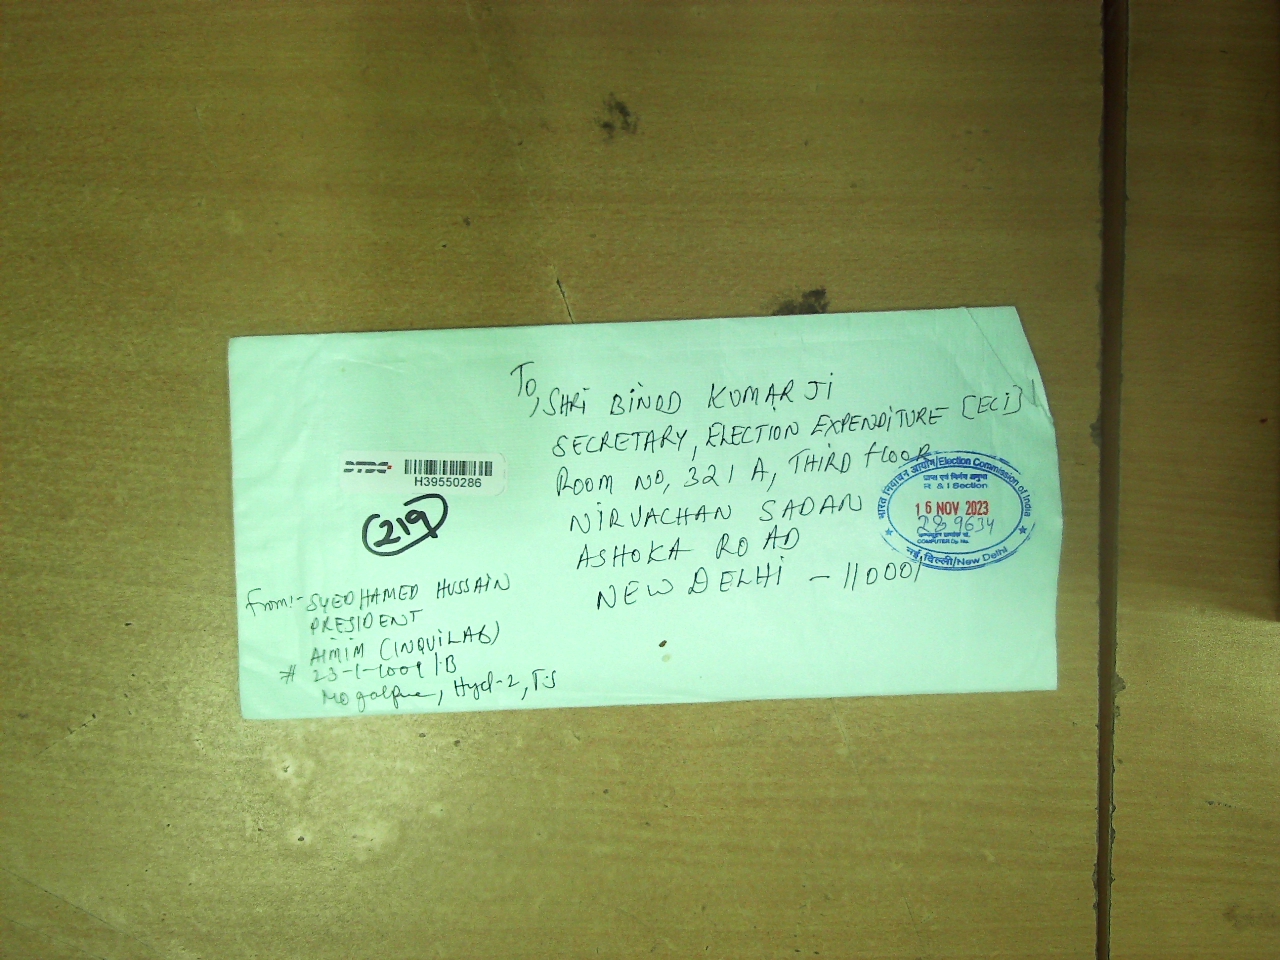 To,
SHRi BINOD KUMAR Ji
SECRETARY, ELECTION EXPENDiTURE [ECi]
ROOM NO, 321 A, THIRD fLOOR
NiRVACHAN SADAN
ASHOKA ROAD
NEW DELHi - 110001
DTDC
H39550286
219
भारत निर्वाचन आयोग/Election Commission of India
R & I Section
16 NOV 2023
289634
COMPUTER Dy. No.
नई दिल्ली/New Delhi
from:- SYED HAMED HUSSAIN
PRESIDENT
AIMIM (INQUILAB)
# 23-1-1009/B
Mogalpura, Hyd-2, T.S